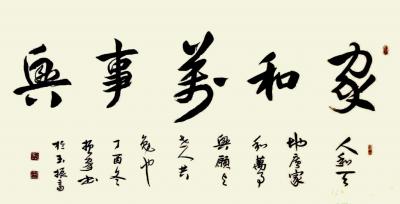 家和萬事興
人和天
地應家
和萬事
興願与
人共
勉也
丁酉冬
書
於玉